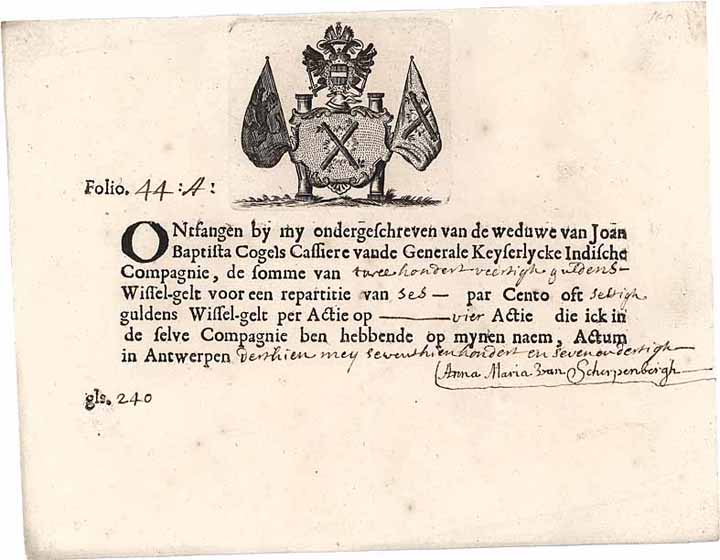 Folio. 44 : A :
ONtfangen by my ondergeschreven van de weduwe van Joan
Baptista Cogels Cassiere vande Generale Keyserlycke Indische
Compagnie, de somme van twee hondert veertigh guldens
Wissel-gelt voor een repartitie van ses — par Cento oft sestigh
guldens Wissel-gelt per Actie op ——— vier Actie die ick in
de selve Compagnie ben hebbende op mynen naem, Actum
in Antwerpen derthien mey seventhienhondert en sevenendertigh
Anna Maria Van Scherpenbergh
gls. 240